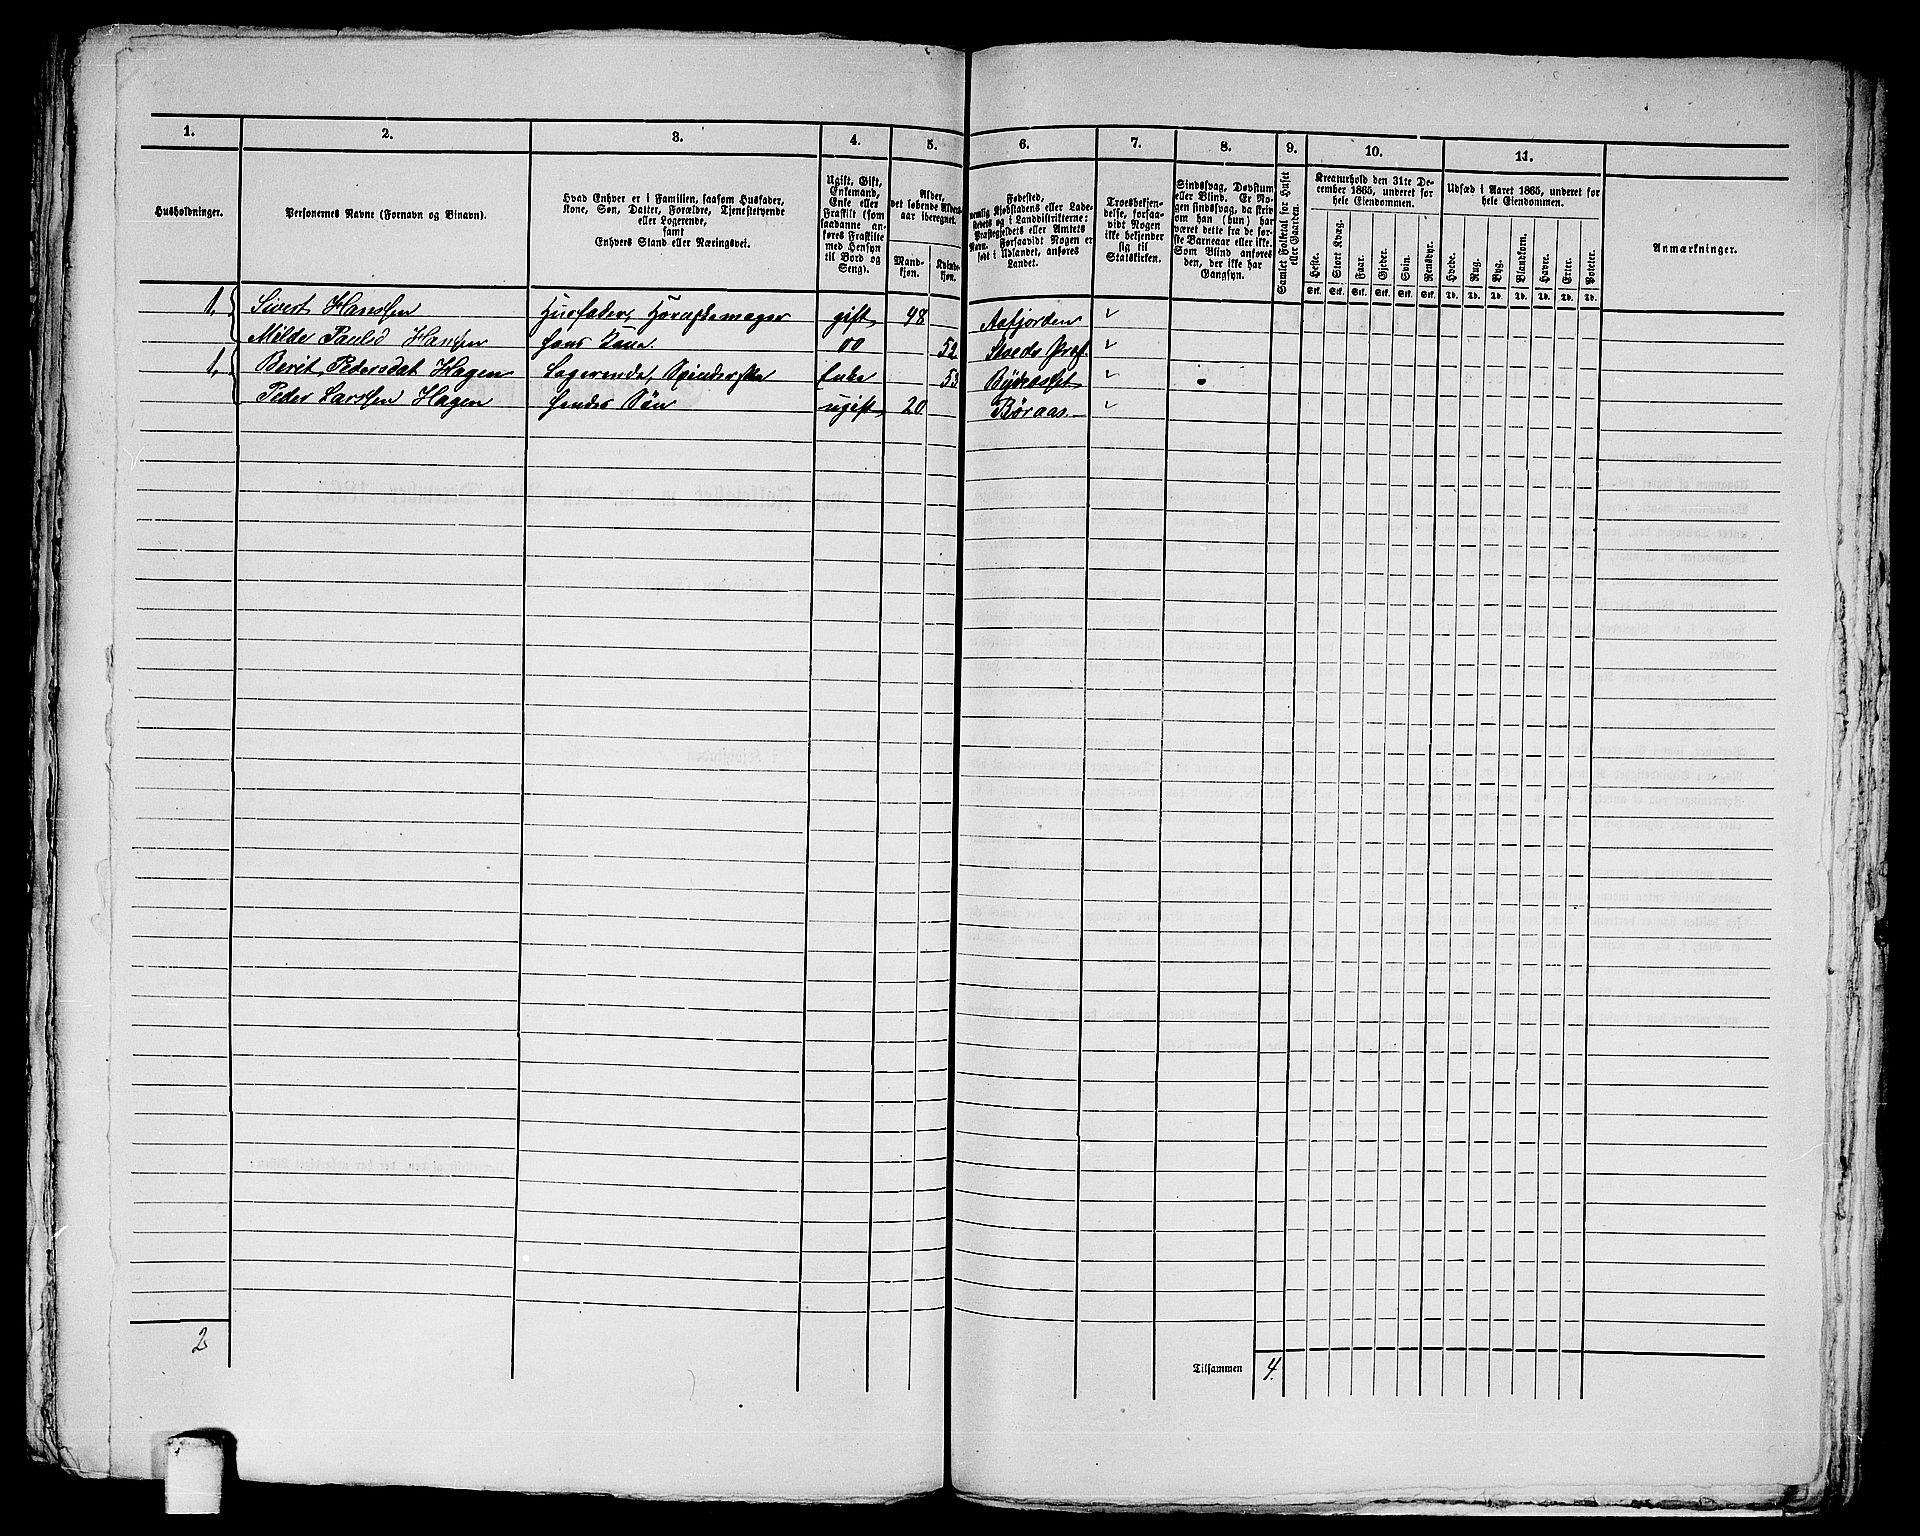 1. 2. 3. 4. 5. 6. 7. 8. 9. 10. 11.
Husholdninger.
Personernes Navne (Fornavn og Binavn).
Hvad Enhver er i Familien, saasom Husfader,
Kone, Søn, Datter, Forældre, Tjenestetyende
eller Logerende,
samt
Enhvers Stand eller Næringsvei.
Ugift, Gift,
Enkemand,
Enke eller
Fraskilt (som
saadanne an-
føres Fraskilte
med Hensyn
til Bord og
Seng).
Alder,
det løbende Alders-
aar iberegnet.
Mand-
kjøn.
Kvinde-
kjøn.
Fødested,
nemlig Kjøbstadens eller Lade-
stedets og i Landdistrikterne:
Præstegjeldets eller Amtets
Navn. Forsaavidt Nogen er
født i Udlandet, anføres
Landet.
Troesbekjen-
delse, forsaa-
vidt Nogen
ikke bekjender
sig til
Statskirken.
Sindssvag, Døvstum
eller Blind. Er No-
gen sindssvag, da skriv
om han (hun) har
været dette fra de før-
ste Barneaar eller ikke.
Som Blind anføres
den, der ikke har
Gangsyn.
Samlet Folketal for Huset
eller Gaarden.
Kreaturhold den 31te De-
cember 1865, underet for
hele Eiendommen.
Heste. Stort Kvæg. Faar. Gjeder. Svin. Rensdyr.
Stk. Stk. Stk. Stk. Stk. Stk.
Udsæd i Aaret 1865, underet for
hele Eiendommen.
Hvede. Rug. Byg. Blandkorn. Havre. Erter. Poteter.
Td. Td. Td. Td. Td. Td. Td.
Anmærkninger.
1, Sivert Hanssen Husfader, gift 48 Aafjorden
Hansen hans Kone 52
1, Berit Pedersdat Hagen Logerende, Spinderske Enke 53
Peder Larssen Hagen hendes Søn ugift 20 Børaas
2
Tilsammen 4.